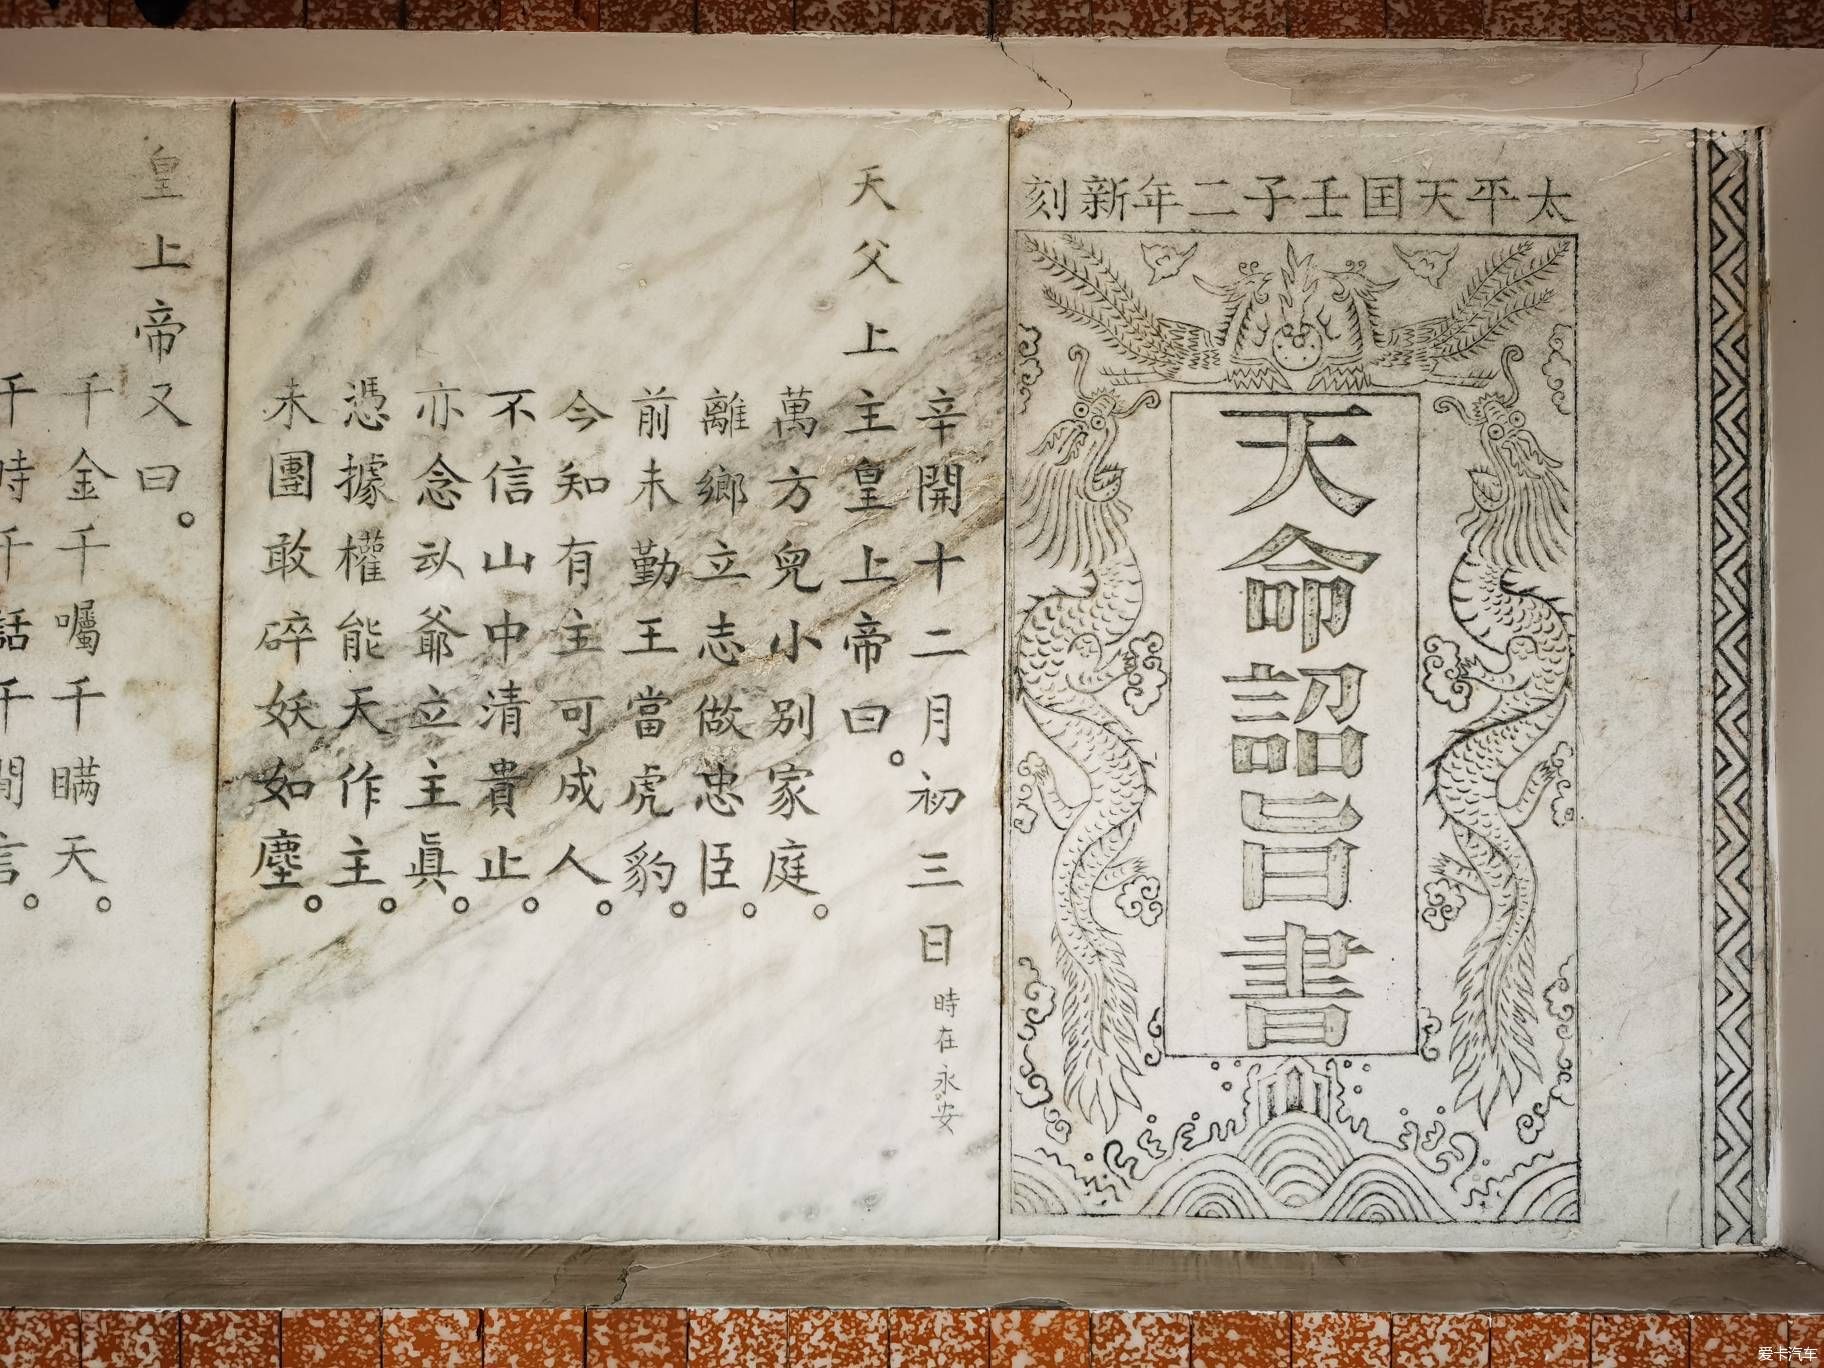 太平天囯壬子二年新刻
天命詔旨書
辛開十二月初三日 時在永安
天父上主皇上帝曰。
萬方兒小別家庭。
離鄉立志做忠臣。
前未勤王當虎豹。
今知有主可成人。
不信山中清貴止。
亦念爺立主眞。
憑據權能天作主。
未團敢碎妖如塵。
皇上帝又曰。
千金千囑千瞞天。
千時千話千言。
爱卡汽车